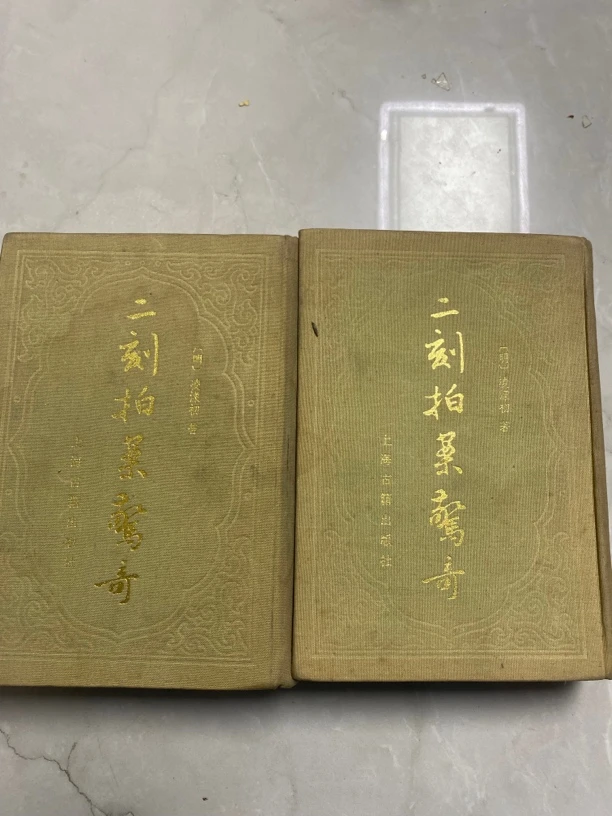 二刻拍案驚奇
〔明〕凌濛初 著
上海古籍出版社
二刻拍案驚奇
〔明〕凌濛初 著
上海古籍出版社